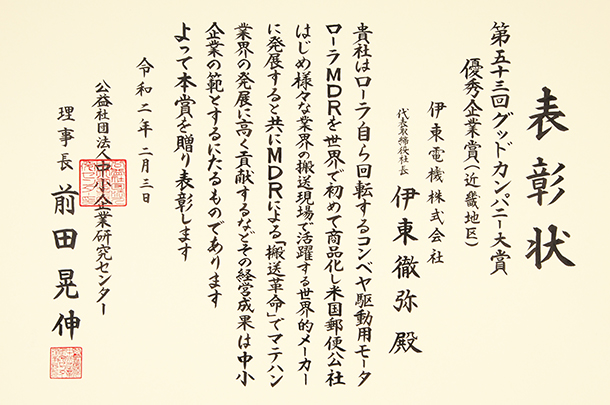 表彰状
第五十三回グッドカンパニー大賞
優秀企業賞(近畿地区)
伊東電機株式会社
代表取締役社長 伊東徹弥 殿
貴社はローラ自ら回転するコンベヤ駆動用モータ
ローラMDRを世界で初めて商品化し米国郵便公社
はじめ様々な業界の搬送現場で活躍する世界的メーカー
に発展すると共にMDRによる「搬送革命」でマテハン
業界の発展に高く貢献するなどその経営成果は中小
企業の範とするにたるものであります
よって本賞を贈り表彰します
令和二年二月三日
公益社団法人中小企業研究センター
理事長 前田晃伸